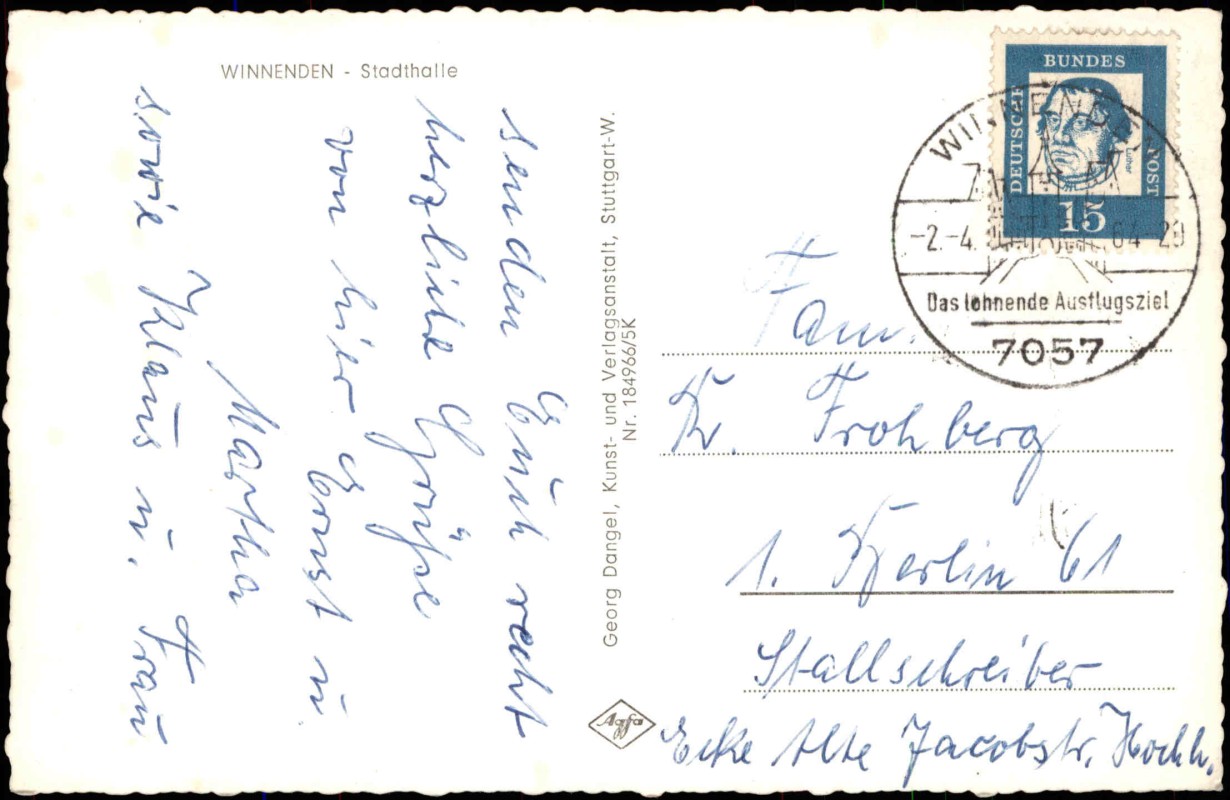 WINNENDEN - Stadthalle
senden Euch recht
herzliche Grüße
von hier Ernst u
Martha
sowie Klaus u. Frau
Georg Dangel, Kunst- und Verlagsanstalt, Stuttgart-W.
Nr. 184966/5K
Agfa
DEUTSCHE
BUNDES
POST
Luther
15
WINNENDEN
-2.-4. 64-20
Das lohnende Ausflugsziel
7057
Fam.
K. Frohberg
1. Berlin 61
Stallschreiber
Ecke Alte Jacobstr. Hochh.